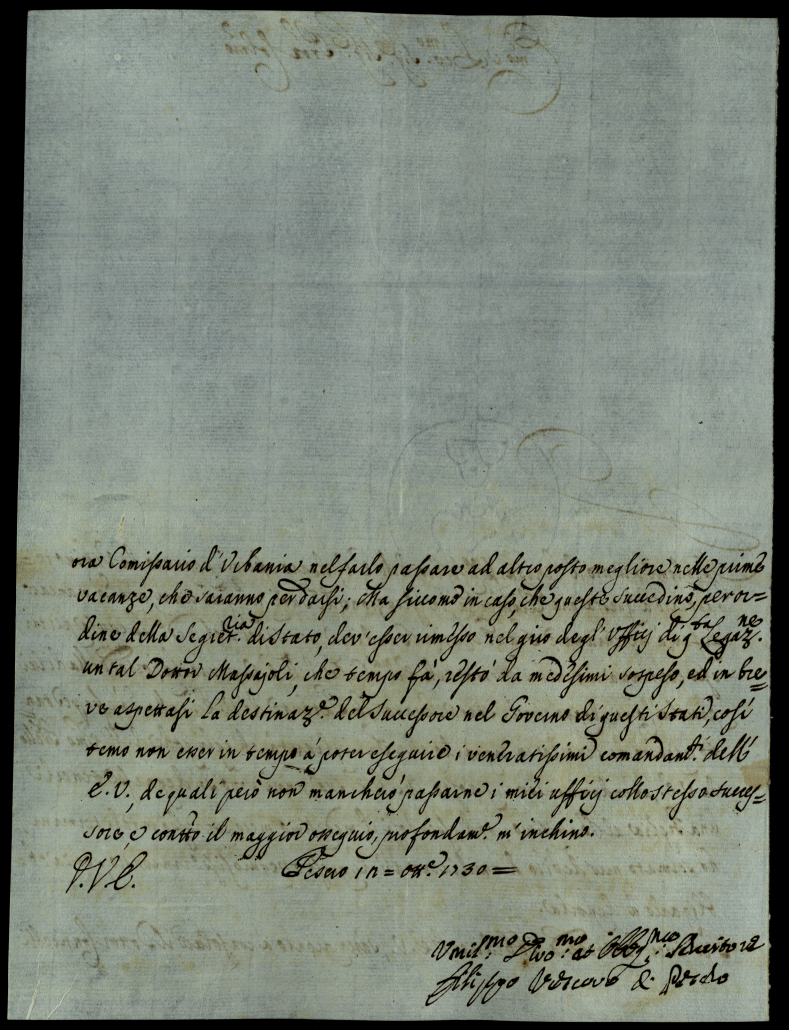 ora Comissario d'Urbania nel farlo passare ad altro posto megliore nelle prime
vacanze, che saranno per darsi; Ma siccome in caso, che queste succedino, per or=
dine della Segret.ria di Stato, dev'esser rimesso nel giro degl'Uffizij di q.sta Legaz.ne
un tal Dottor Massajoli, che tempo fà, restò da medesimi sospeso, ed in bre=
ve aspettasi la destinaz.e del Successore nel Governo di questi Stati, così
temo non esser in tempo à poter eseguire i veneratissimi comandam.ti dell'
E. V., de quali però non mancherò passarne i miei uffizij collo stesso succes=
sore, e con tto il maggior ossequio, profondam.e m'inchino.
D. V. E.
Pesaro 1730 =
Umil.mo Divo.mo et Obbg.mo Servitore
Filippo Vescovo di